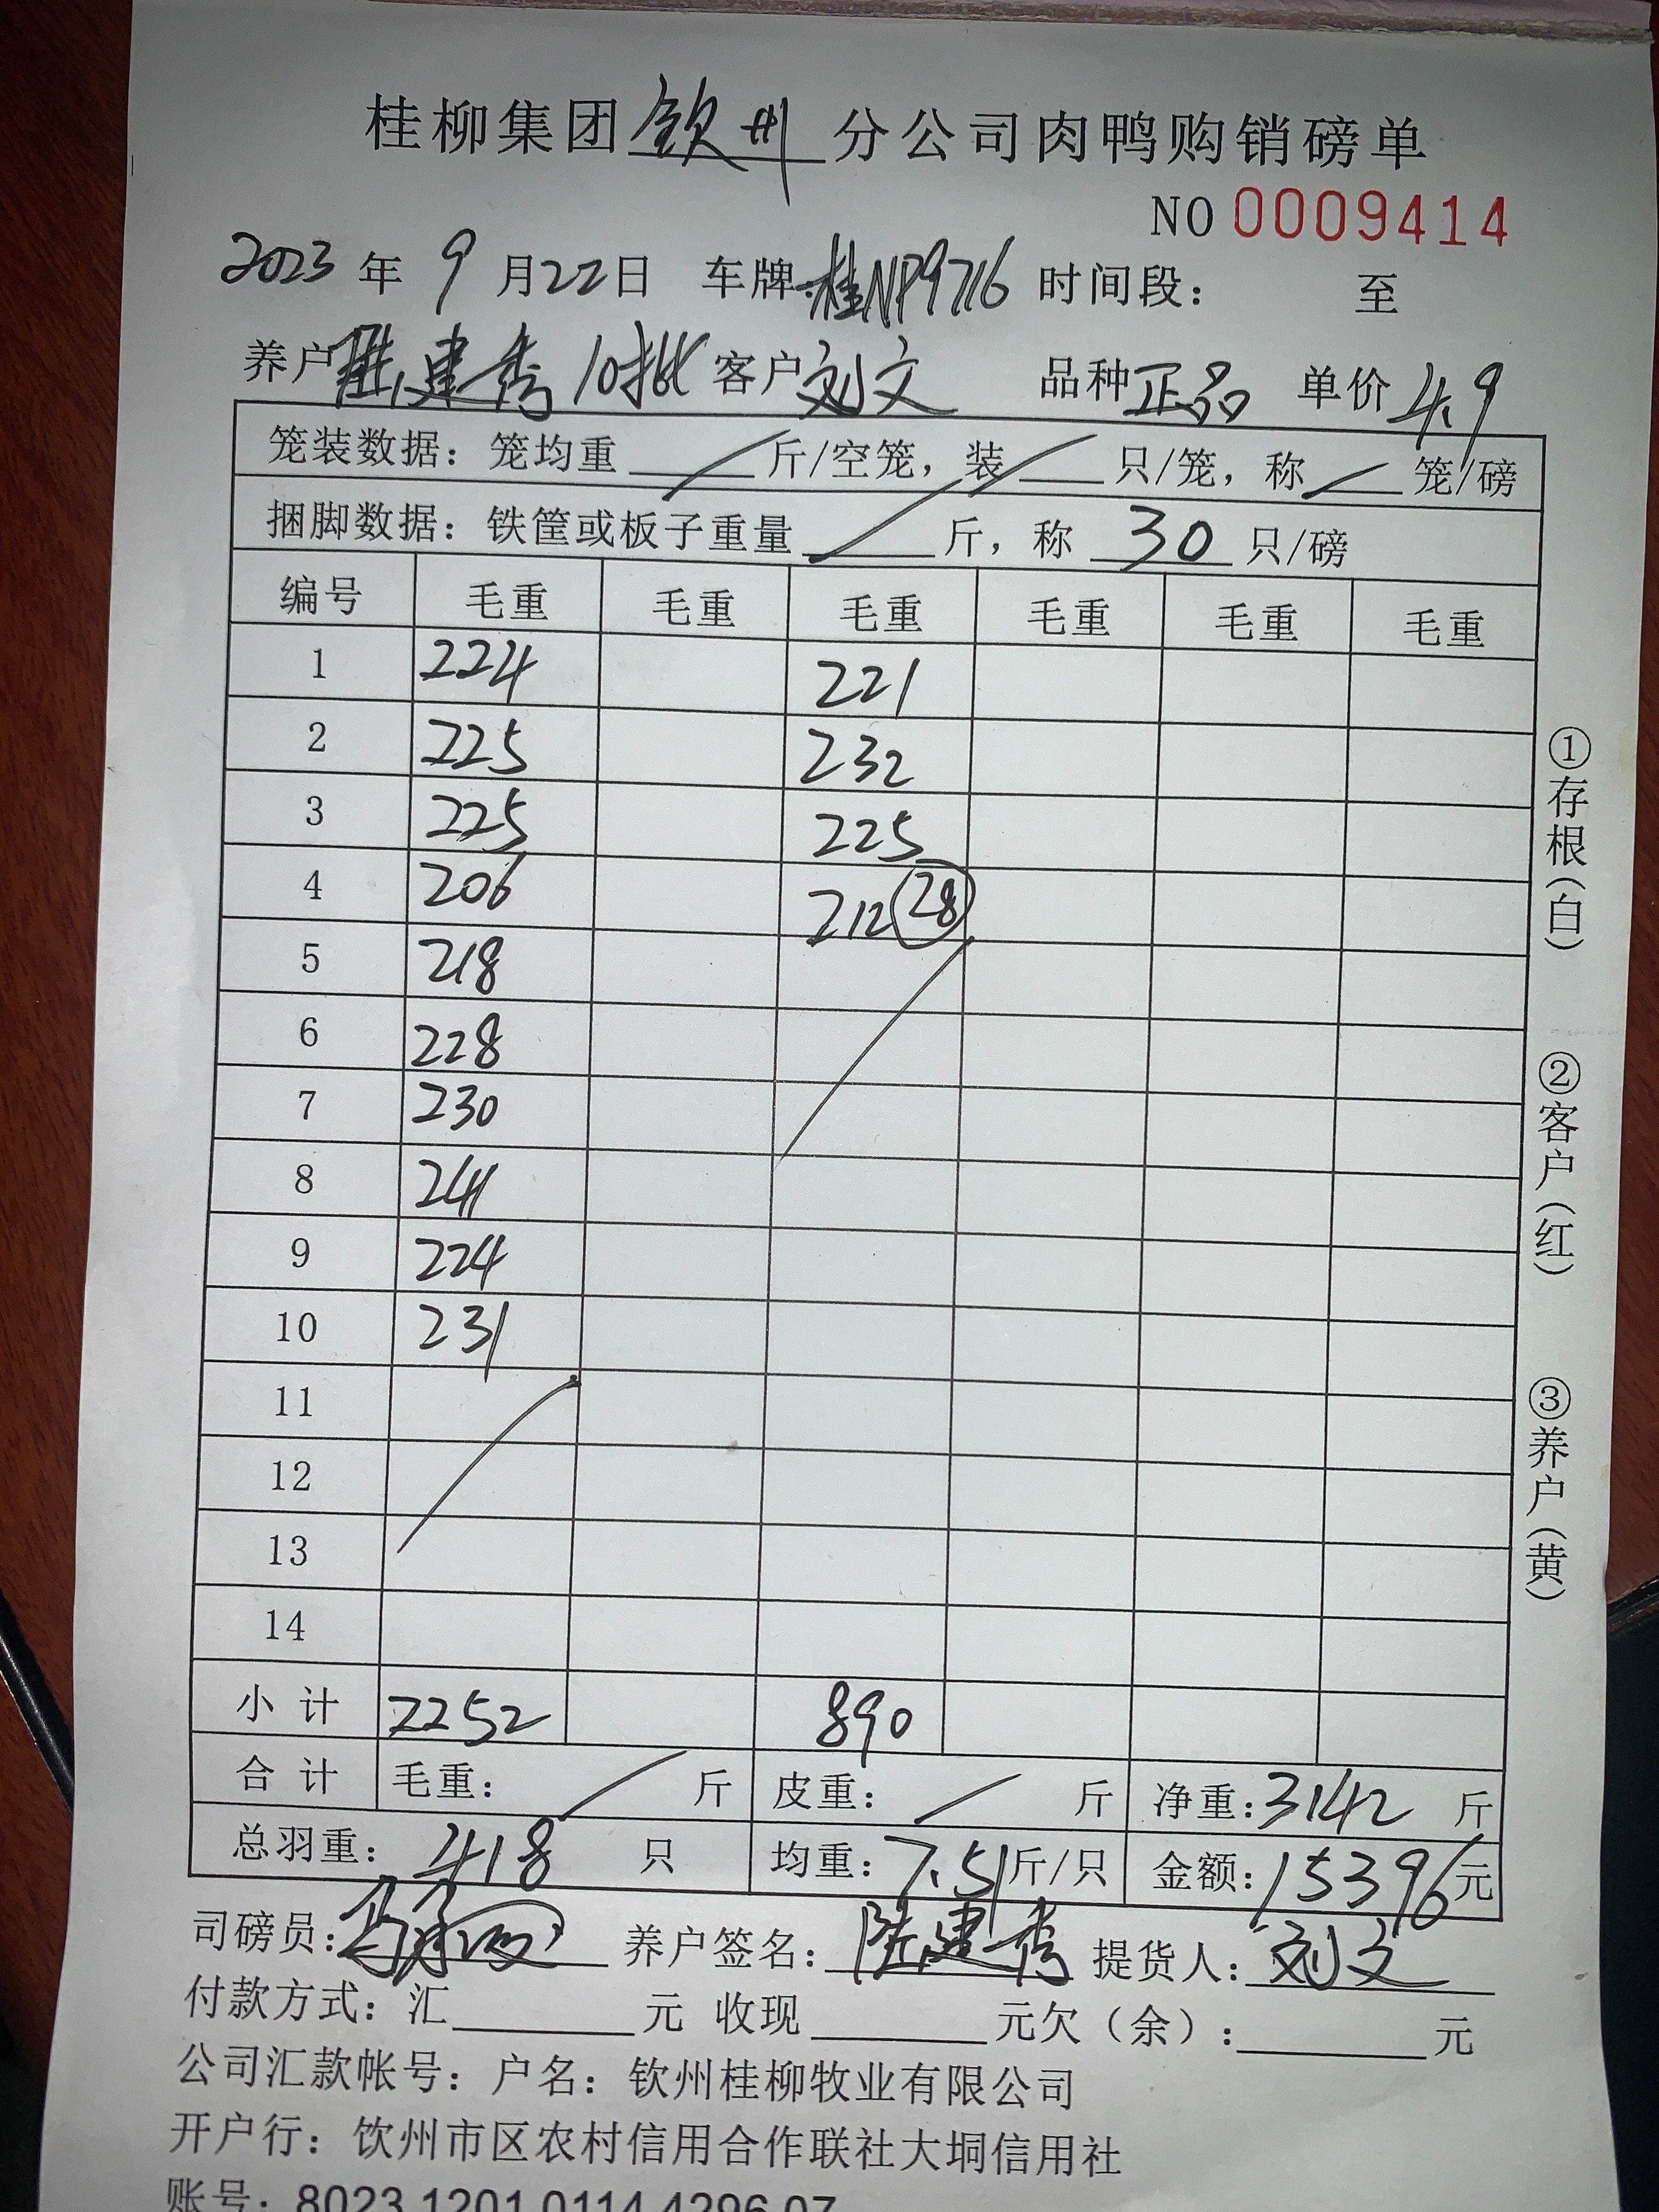 桂柳集团钦州分公司肉鸭购销磅单
NO 0009414
2023年9月22日 车牌:桂NP9716 时间段: 至
养户陆建秀10批 客户刘文 品种正品 单价4.9
笼装数据:笼均重/斤/空笼,装/只/笼,称/笼/磅
捆脚数据:铁筐或板子重量/斤,称30只/磅
编号 毛重 毛重 毛重 毛重 毛重 毛重
1 224 221
2 225 232
3 225 225
4 206 212 28
5 218
6 228
7 230
8 241
9 224
10 231
11
12
13
14
小计 2252 890
合计 毛重:/斤 皮重:/斤 净重:3142斤
总羽重:418只 均重:7.51斤/只 金额:15396元
司磅员: 养户签名:陆建秀 提货人:刘文
付款方式:汇 元 收现 元欠(余): 元
公司汇款帐号:户名:钦州桂柳牧业有限公司
开户行:钦州市区农村信用合作联社大垌信用社
账号:8023 1201 0114 4296 07
①存根(白)
②客户(红)
③养户(黄)